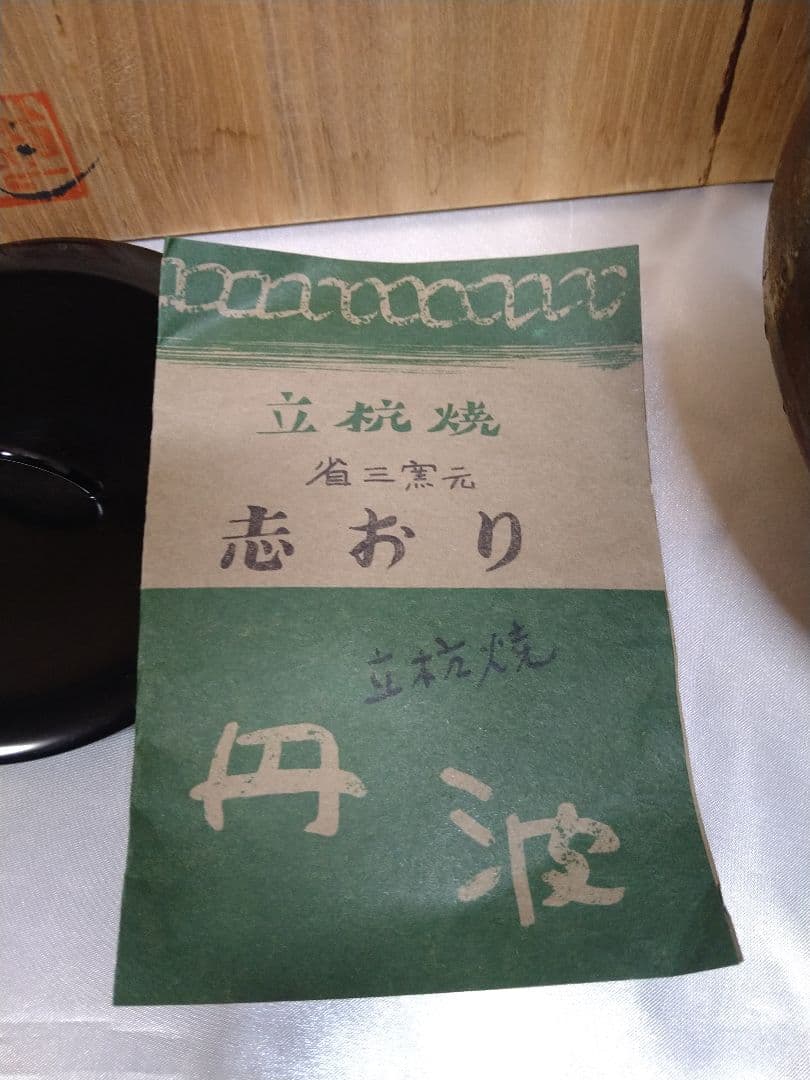 立杭焼
省三窯元
志おり
立杭焼
丹波